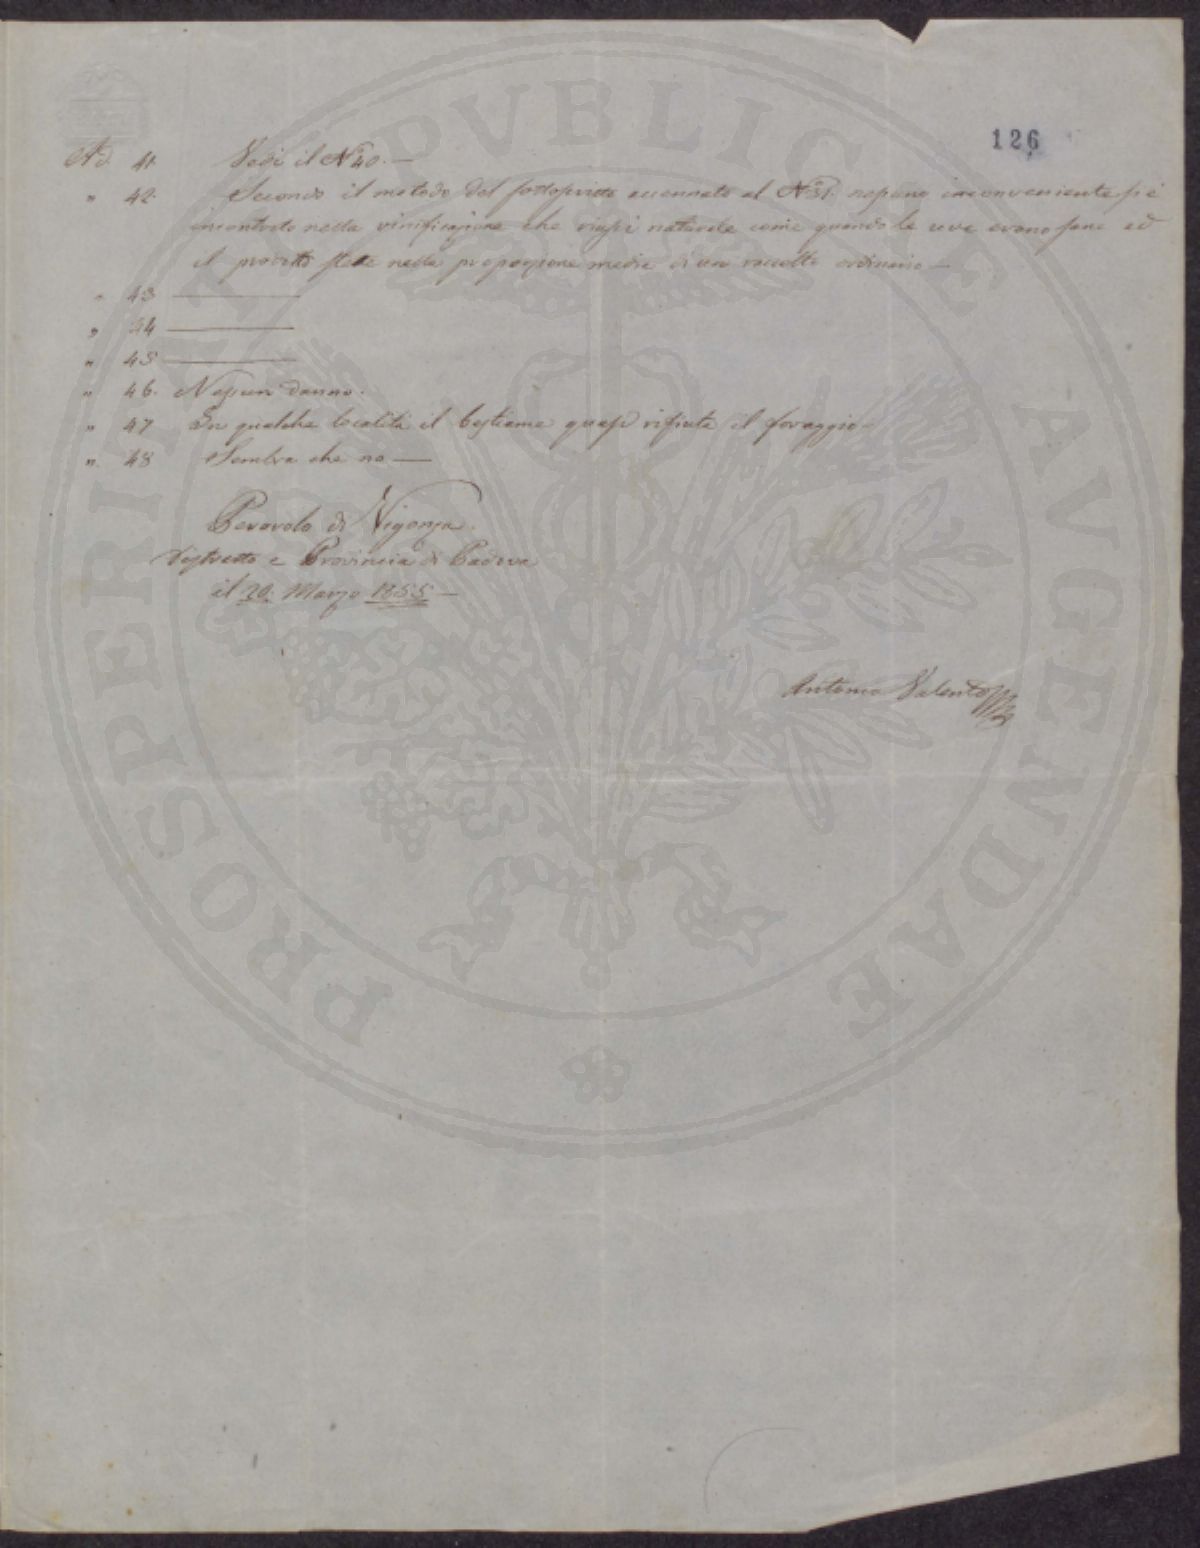 126
Ad 41. Vedi il N° 40. —
" 42. Secondo il metodo del sottoscritto accennato al N° 31. nessuno inconveniente si è
incontrato nella vinificazione che riuscì naturale come quando le uve erano sane ed
il prodotto stette nella proporzione media di un raccolto ordinario —
" 43 —
" 44 —
" 45 —
" 46. Nessun danno.
" 47 In qualche località il bestiame quasi rifiuta il foraggio —
" 48 Sembra che no —
Peraolo di Vigonza.
Distretto e Provincia di Padova
il 20. Marzo 1855. —
Antonio Valento
PROSPERITATI PVBLICAE AVGENDAE